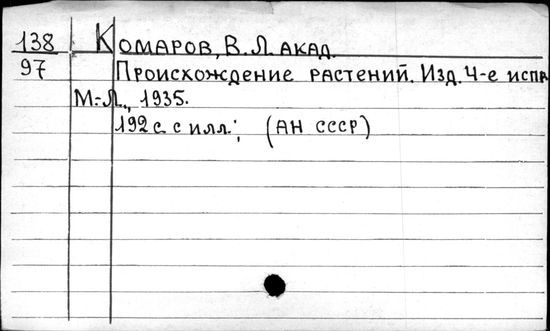 138 КОМАРОВ, В.Л. АКАД.
97 Происхождение растений. Изд. 4-е испр
М.-Л., 1935.
192 с. с илл.; (АН СССР)